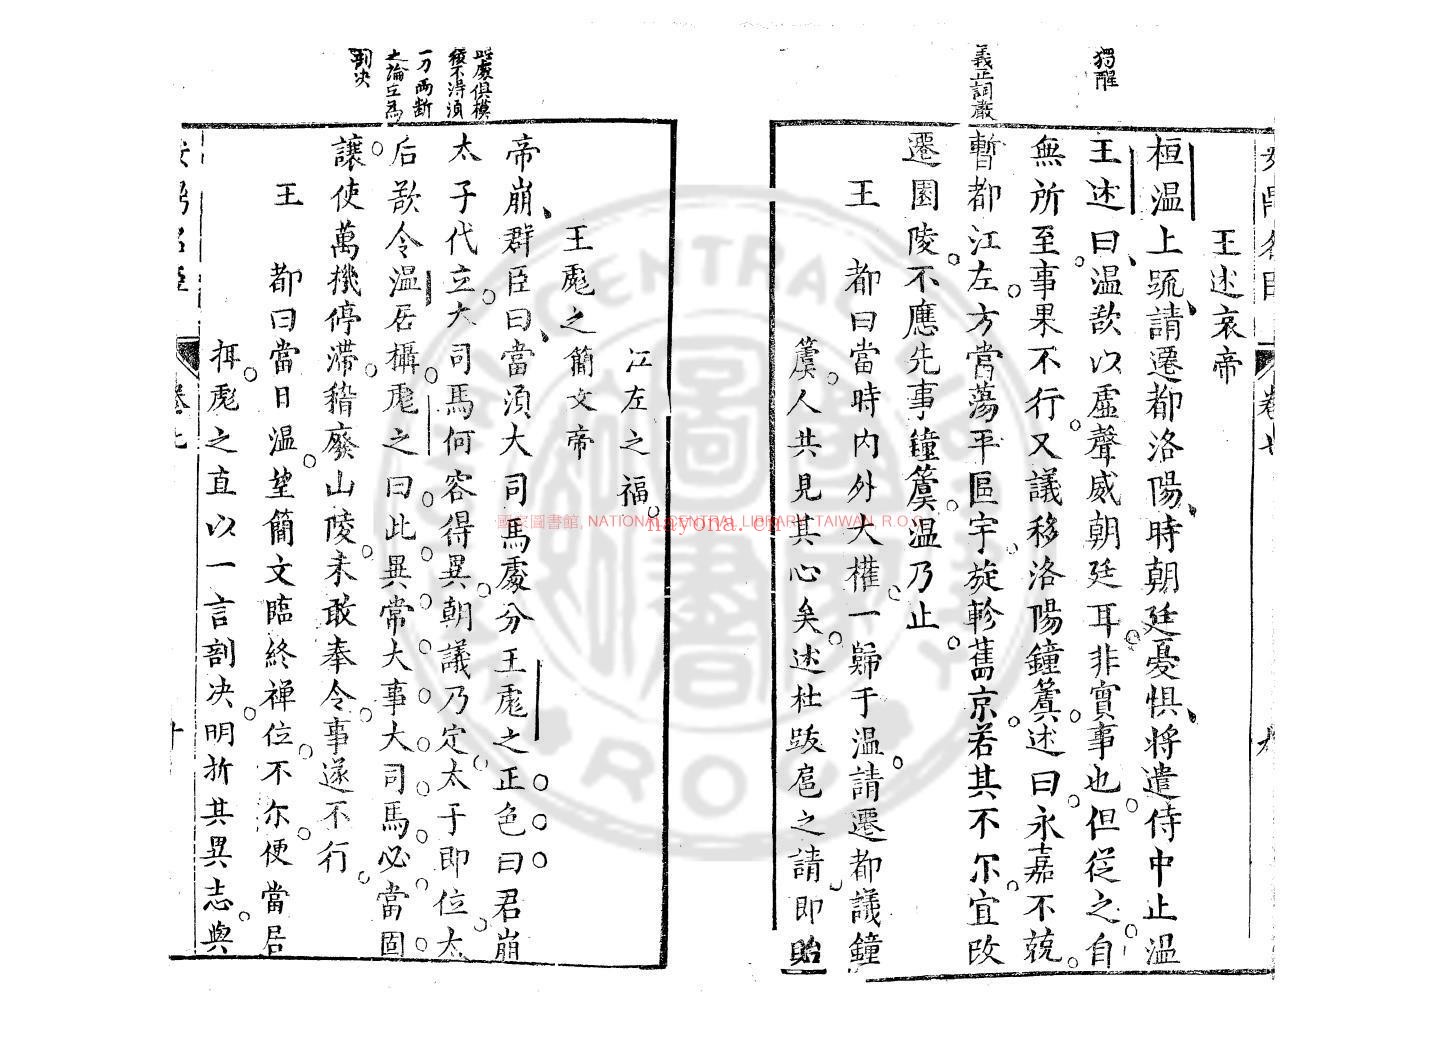 獨醒
義正詞嚴
王述哀帝
桓温上䟽請遷都洛陽時朝廷憂惧将遣侍中止温
王述曰温欲以虚聲威朝廷耳非實事也但從之自
無所至事果不行又議移洛陽鐘簴述曰永嘉不兢
暫都江左方當蕩平區宇旋軫舊京若其不尔宜改
遷園陵不應先事鐘簴温乃止
王 都曰當時内外大權一歸于温請遷都議鐘
簴人共見其心矣述杜跋扈之請即貽
江左之福
此處俱模
稜不得須
一刀两断
之論立爲
割决
王彪之簡文帝
帝崩群臣曰當須大司馬處分王彪之正色曰君崩
太子代立大司馬何容得異朝議乃定太子即位太
后欲令温居攝彪之曰此異常大事大司馬必當固
讓使萬機停滞稽廢山陵未敢奉令事遂不行
王 都曰當日温望簡文臨終禅位不尔便當居
揖彪之直以一言割决明折其異志與
卷七
十
國家圖書館, NATIONAL CENTRAL LIBRARY, TAIWAN, R.O.C
nayona.cn
NATIONAL CENTRAL LIBRARY
R.O.C